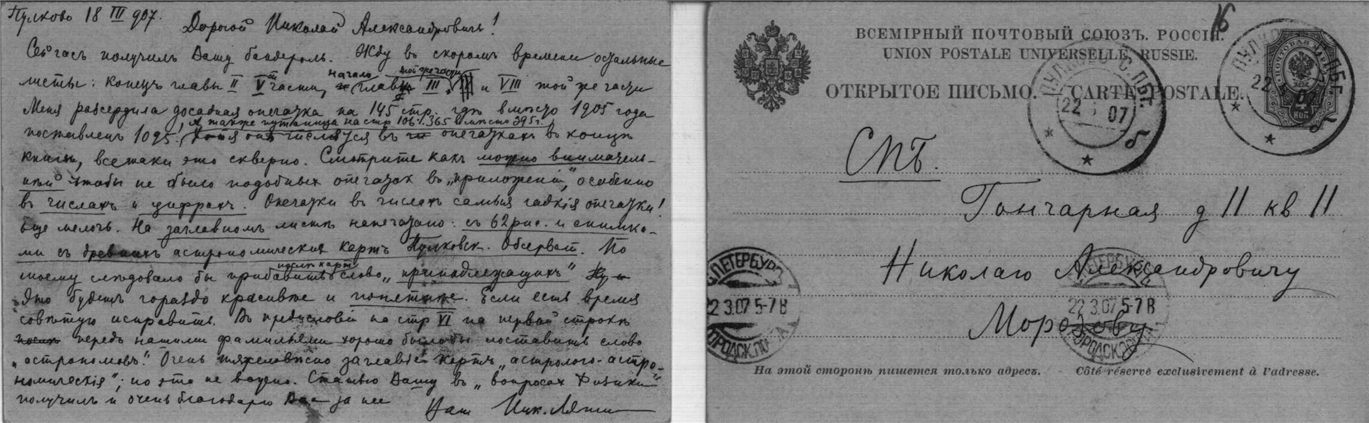 Пулково 18 III 907.
Дорогой Николай Александровичъ!
Сейчасъ получилъ Вашу бандероль. Жду въ скоромъ времени остальные
листы: конецъ главы II V части, начало главы III и VIII той же части
Меня разсердила досадная опечатка на 145 стр. гдѣ вмѣсто 1905 года
поставлено 1095 (а также путаница на стр 106 365 вмѣсто 395)
числятся въ опечаткахъ въ концѣ
книги, все таки это скверно. Смотрите какъ можно вниматель-
нѣй чтобы не было подобныхъ опечатокъ въ „приложенiи", особенно
въ числахъ и цифрахъ. Опечатки въ числахъ самыя гадкiя опечатки!
Еще мелочь. На заглавномъ листѣ напечатано: съ 62 рис. и снимка-
ми съ древнихъ астрономическихъ картъ Пулковск. Обсерват. По
моему слѣдовало бы прибавить слово „принадлежащихъ"
Это будетъ гораздо красивѣе и понятнѣе. Если есть время
совѣтую исправить. Въ предисловiи на стр VI на первой строкѣ
передъ нашими фамилiями хорошо было бы поставить слово
„астрономовъ". Очень тяжеловѣсно заглавiе картъ „астролого-астро-
номическiя"; но это не важно. Статью Вашу въ „Вопросахъ Физики"
получилъ и очень благодарю Васъ за нее
Вашъ Ник. Ляпин
16
ВСЕМIРНЫЙ ПОЧТОВЫЙ СОЮЗЪ. РОССIЯ.
UNION POSTALE UNIVERSELLE. RUSSIE.
ОТКРЫТОЕ ПИСЬМО. — CARTE POSTALE.
ПУЛКОВО С.ПБГ.
22 07
б
ПУЛКОВО С.ПБГ.
22 07
б
4
КОП
СПБ.
Гончарная д 11 кв 11
Николаю Александровичу
Морозову
С.ПЕТЕРБУРГ
22 3.07 5-7 В
ГОРОДСК.ПОЧТА
С.ПЕТЕРБУРГ
22.3.07 5-7 В
ГОРОДСК.ПОЧТА
На этой сторонѣ пишется только адресъ. Côté réservé exclusivement à l'adresse.